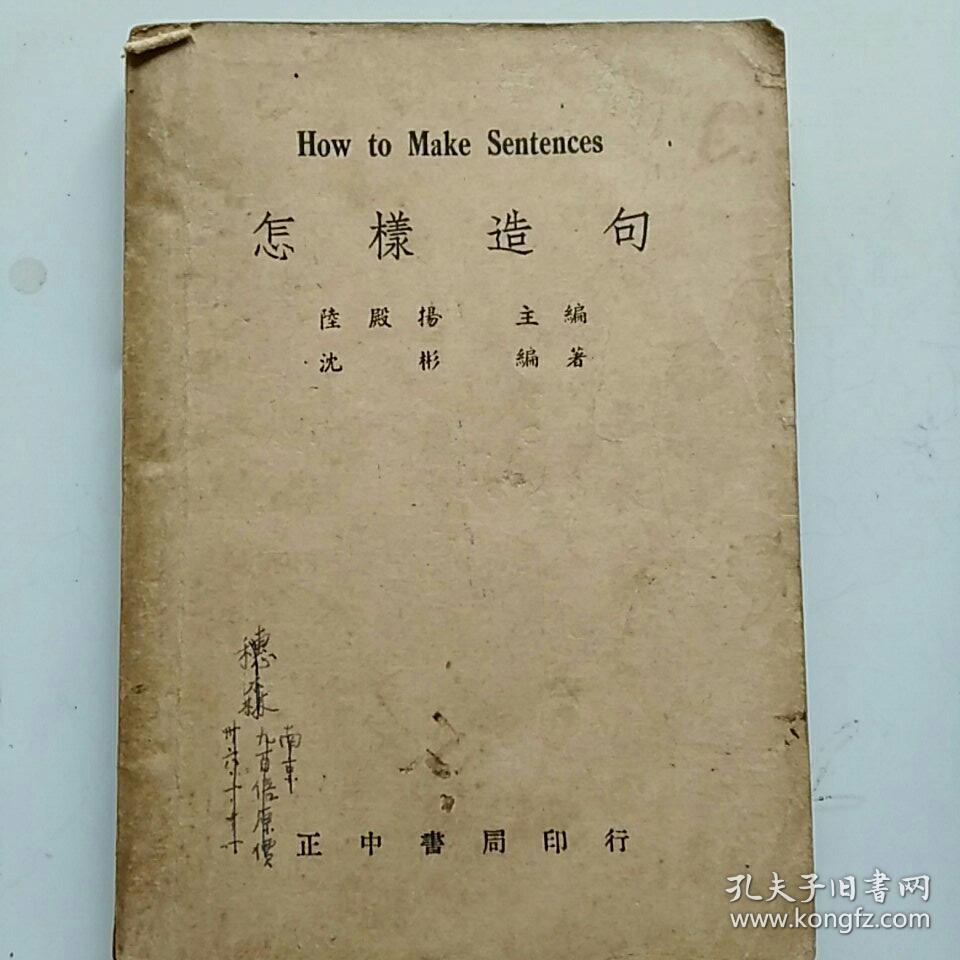 How to Make Sentences
怎樣造句
陸殿揚 主編
沈彬 編著
穗森
南京
九百倍原價
正中書局印行
孔夫子旧書网
www.kongfz.com